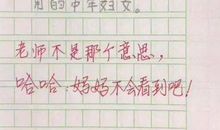 用的中年妇女。
老师不是那个意思,
哈哈:妈妈不会看到吧!